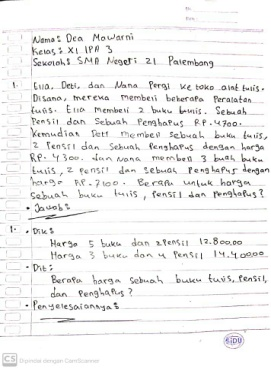 No.
Date.
Nama : Dea Mowarni
Kelas : XI IPA 3
Sekolah : SMA Negeri 21 Palembang
1. Ella, Deti, dan Nana Pergi ke toko alat tulis.
Disana, mereka membeli beberapa Peralatan
tulis. Ella membeli 2 buku tulis. Sebuah
Pensil dan Sebuah Penghapus RP. 4700.
Kemudian Deti membeli sebuah buku tulis,
2 Pensil dan Sebuah Penghapus dengan harga
RP. 4300. dan Nana membeli 3 buah buku
tulis, 2 Pensil dan sebuah Penghapus dengan
harga RP. 7100. Berapa untuk harga
sebuah buku tulis, Pensil dan Penghapus ?
• Jawab :
1. • Dik :
Harga 5 buku dan 2 Pensil 12.800,00
Harga 3 buku dan 4 Pensil 14.400,00
• Dit :
Berapa harga sebuah buku tulis, Pensil,
dan Penghapus ?
• Penyelesaiannya :
SIDU
CS Dipindai dengan CamScanner